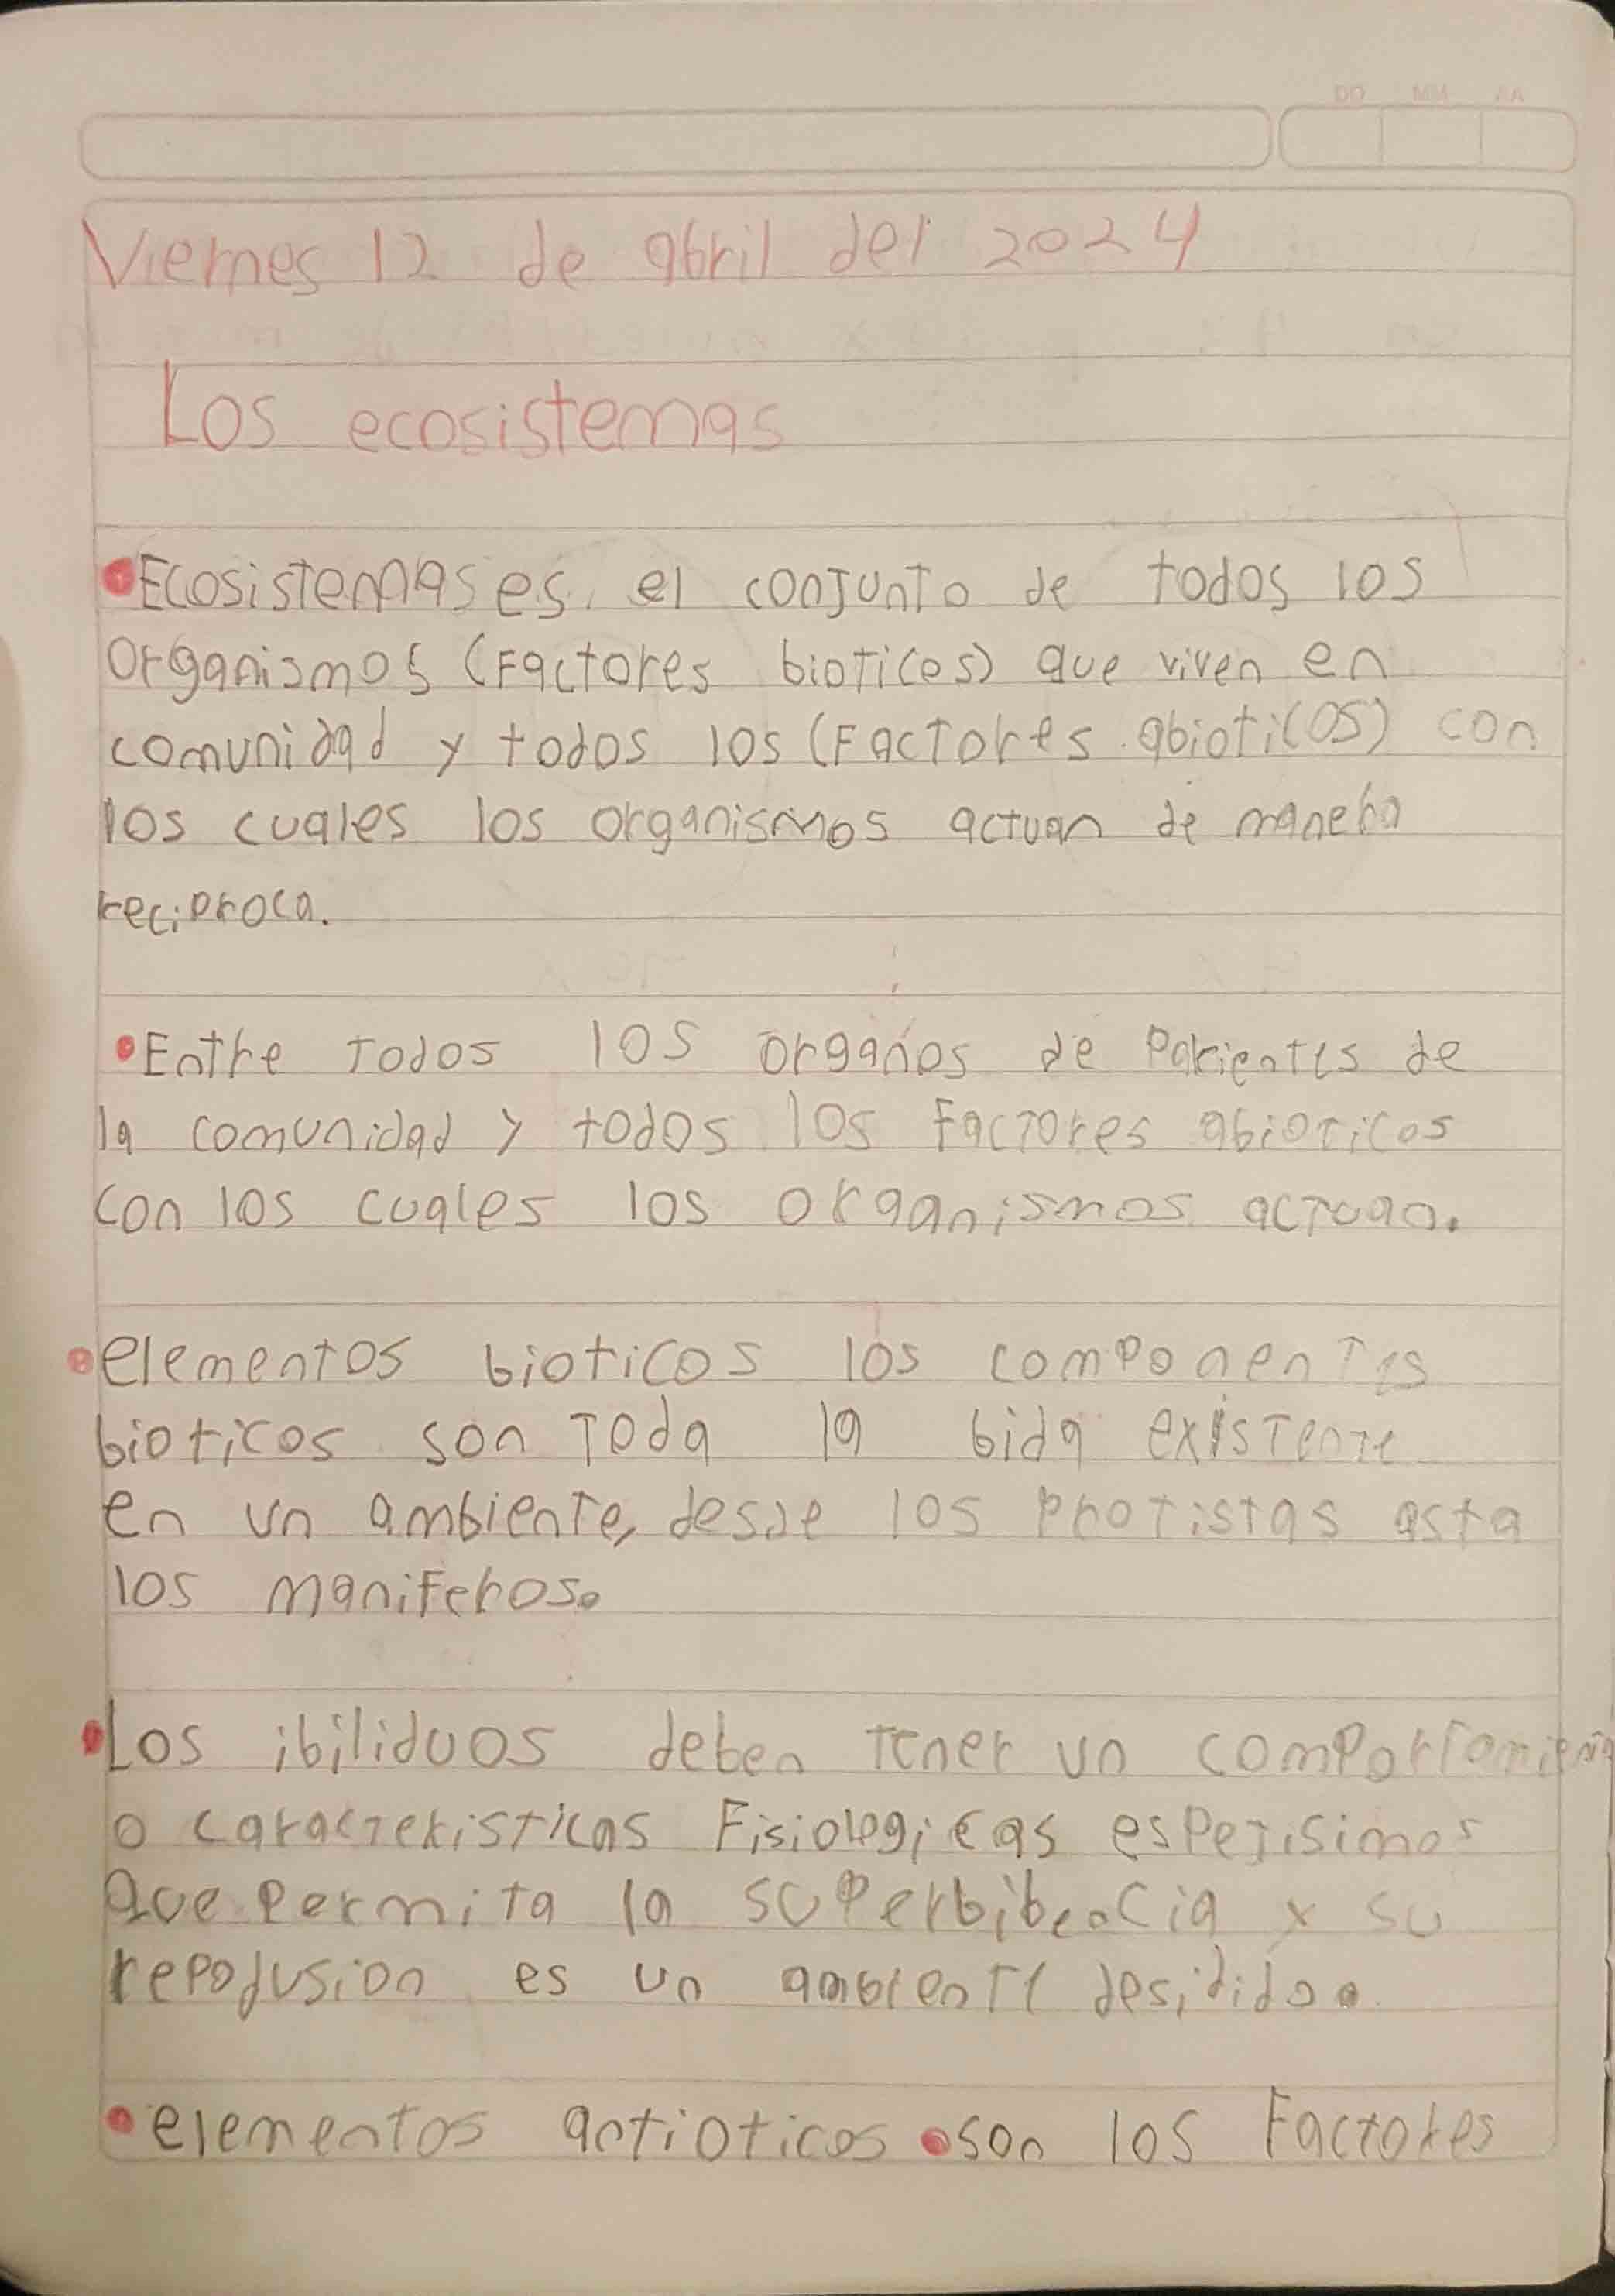 DD MM AA
Viernes 12 de abril del 2024
Los ecosistemas
Ecosistemas es el conjunto de todos los
organismos (Factores bioticos) que viven en
comunidad y todos los (Factores abioticos) con
los cuales los organismos actuan de manera
reciproca.
Entre todos los organos de parientes de
la comunidad y todos los factores abioticos
con los cuales los organismos actuan.
elementos bioticos los componentes
bioticos son toda la bida existente
en un ambiente, desde los protistas asta
los maniferos.
Los ibiliduos deben tener un comportamiento
o caracteristicas Fisiologicas espejisimos
que permita la superbibencia y su
repodusion es un ambiente desidido.
elementos antioticos son los Factores